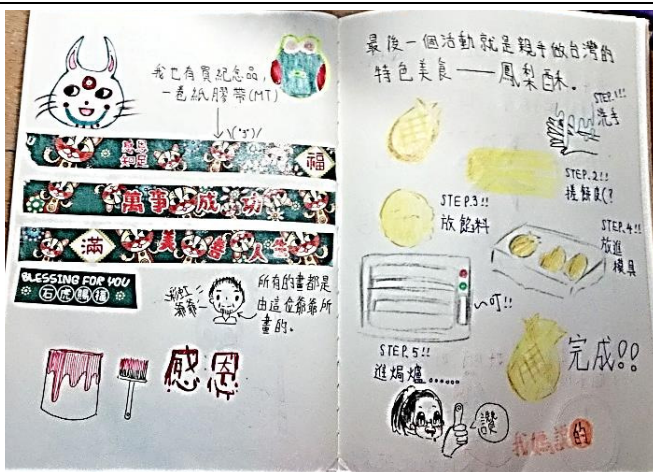 我也有買紀念品,
一卷紙膠帶(MT)
福
萬事成功
滿
美善人
BLESSING FOR YOU
石虎賜福
彩虹
爺爺
所有的畫都是
由這位爺爺所
畫的.
感恩
最後一個活動就是親手做台灣的
特色美食——鳳梨酥.
STEP.1!!
洗手
STEP.2!!
搓餅皮(?
STEP.3!!
放餡料
STEP.4!!
放進
模具
叮!!
STEP.5!!
進焗爐......
完成!!
讚
我媽說的